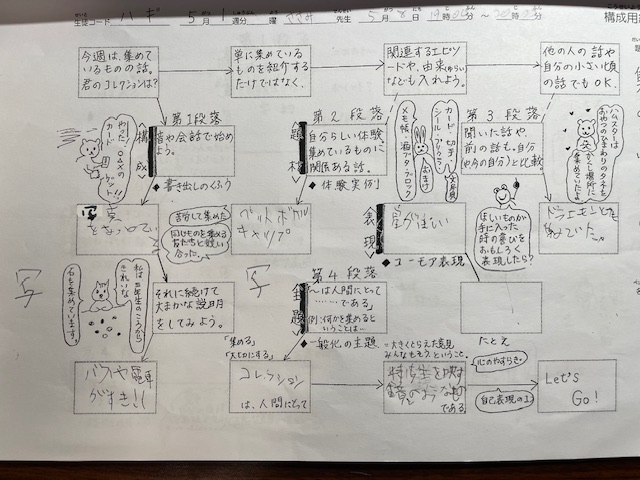 生徒コード
5月1週分
先生
構成用紙
今週は、集めて
いるものの話。
君のコレクションは?
単に集めている
ものを紹介する
だけではなく、
関連するエピソ
ードや、由来(ゆらい)
なども入れよう。
他の人の話や
自分の小さい頃
の話でもOK.
第1段落
構成
音や会話で始め
よう。
◆書き出しのくふう
やった!
カード
ゲット!!
第2段落
題材
自分らしい体験、
集めているものに
関係ある話。
◆体験実例
カード・切手・
シール・
文房具
おまけ
メモ帳・
ブロック
第3段落
聞いた話や、
前の話も。自分
(や今の自分)と比較。
ハムスターは
おやつのひまわりのタネを
集めていたよ
苦労して集めた
同じものを集める
友だちと競い
合った。
ペットボトル
キャップ
表現
◆ユーモア表現
ほしいものが
手に入った
時の喜びを
おもしろく
表現したら?
写
私は二年生のころから
きれいな
石を集めています。
それに続けて
大まかな説明
をしてみよう。
写
第4段落
主題
「〜は人間にとって
……である」
例:何かを集めると
いうことは…
◆一般化の主題
=大きくとらえた意見
みんなもそう、ということ。
「集める」
「大切にする」
たとえ
バスや電車
がすき!!
コレクション
は、人間にとって
鏡のようなもの
である
心のやすらぎ。
自己表現の1つ
Let's
Go!